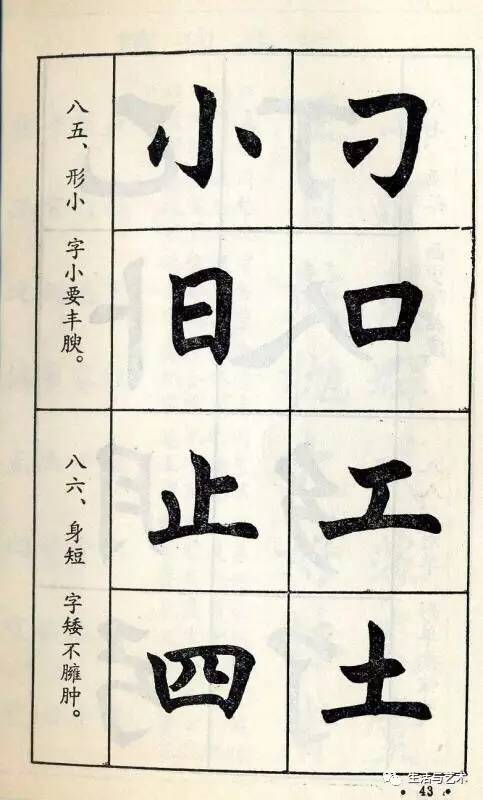 八五、形小 字小要丰腴。
小 刁
日 口
八六、身短 字矮不臃肿。
止 工
四 土
生活与艺术
• 43 •